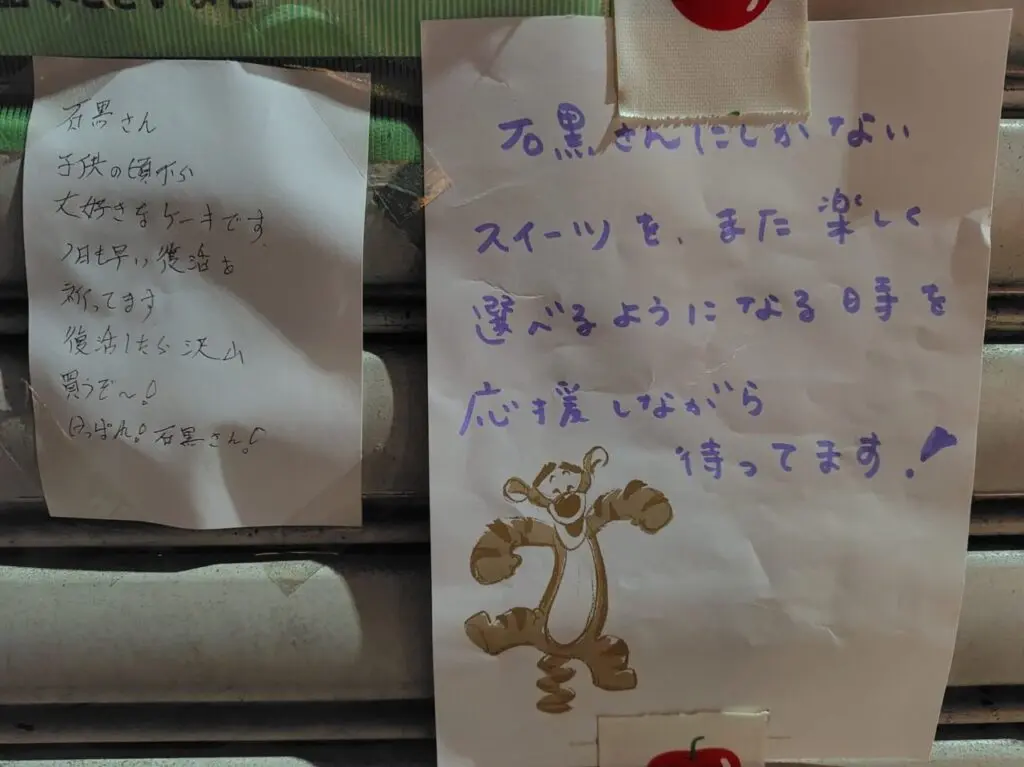 石黒さん
子供の頃から
大好きなケーキです
1日も早い復活を
祈ってます
復活したら沢山
買うぞ〜!
石黒さん!
石黒さんにしかない
スイーツを、また楽しく
選べるようになる時を
応援しながら
待ってます!